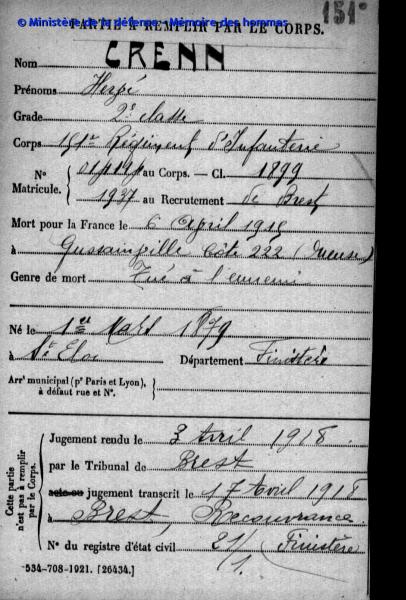 © Ministère de la défense - Mémoire des hommes
PARTIE À REMPLIR PAR LE CORPS.
151e
Nom CRENN
Prénoms Hervé
Grade 2e classe
Corps Régiment d'Infanterie
N° Matricule. au Corps. — Cl. 1899
1937 au Recrutement de Brest
Mort pour la France le 6 April 1915
à Gussainville Côte 222 (Meuse)
Genre de mort Tué à l'ennemi
Né le 1er Mars 1879
à St Eloi Département Finistère
Arrt municipal (pr Paris et Lyon), à défaut rue et N°.
Cette partie n'est pas à remplir par le Corps.
Jugement rendu le 3 Avril 1918
par le Tribunal de Brest
acte ou jugement transcrit le 17 Avril 1918
à Brest, Recouvrance
N° du registre d'état civil 21/1. Finistère
534-708-1921. [26434.]